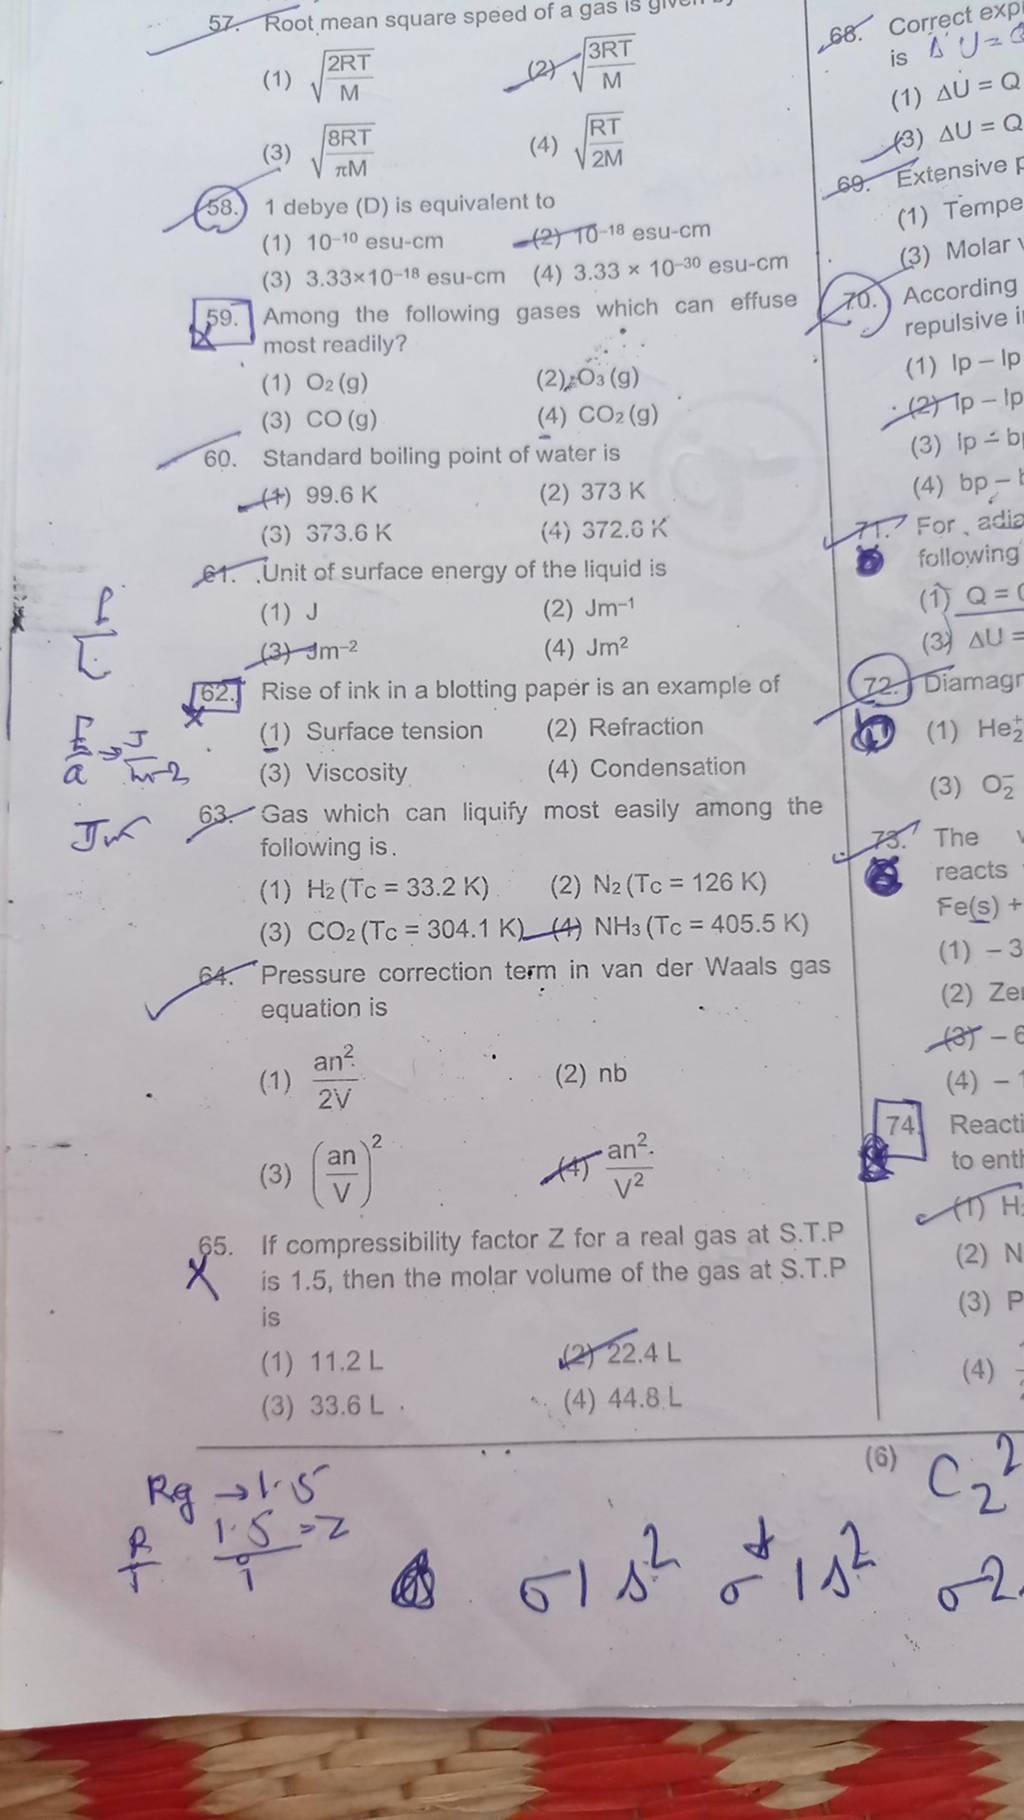 57. Root mean square speed of a gas is given
(1) √(2RT/M) (2) √(3RT/M)
(3) √(8RT/πM) (4) √(RT/2M)
58. 1 debye (D) is equivalent to
(1) 10⁻¹⁰ esu-cm (2) 10⁻¹⁸ esu-cm
(3) 3.33×10⁻¹⁸ esu-cm (4) 3.33 × 10⁻³⁰ esu-cm
59. Among the following gases which can effuse
most readily?
(1) O₂ (g) (2) O₃ (g)
(3) CO (g) (4) CO₂ (g)
60. Standard boiling point of water is
(1) 99.6 K (2) 373 K
(3) 373.6 K (4) 372.6 K
61. Unit of surface energy of the liquid is
(1) J (2) Jm⁻¹
(3) Jm⁻² (4) Jm²
62. Rise of ink in a blotting paper is an example of
(1) Surface tension (2) Refraction
(3) Viscosity (4) Condensation
63. Gas which can liquify most easily among the
following is.
(1) H₂ (Tc = 33.2 K) (2) N₂ (Tc = 126 K)
(3) CO₂ (Tc = 304.1 K) (4) NH₃ (Tc = 405.5 K)
64. Pressure correction term in van der Waals gas
equation is
(1) an²/2V (2) nb
(3) (an/V)² (4) an²/V²
65. If compressibility factor Z for a real gas at S.T.P
is 1.5, then the molar volume of the gas at S.T.P
is
(1) 11.2 L (2) 22.4 L
(3) 33.6 L (4) 44.8 L
68. Correct
is ΔU =
(1) ΔU = Q
(3) ΔU = Q
69. Extensive
(1)
(3) Molar
70. According
repulsive
(1) lp – lp
(2) lp – lp
(3) lp –
(4) bp –
71. For
following
(1) Q =
(3) ΔU =
72.
(1) He₂⁺
(3) O₂⁻
73. The
reacts
Fe(s) +
(1) – 3
(2)
(3) – 6
(4) –
74.
to
(1) H
(2) N
(3) P
(4)
(6)
Rg → 1.5
1.5 = Z
C₂²
σ1s² σ*1s² σ2